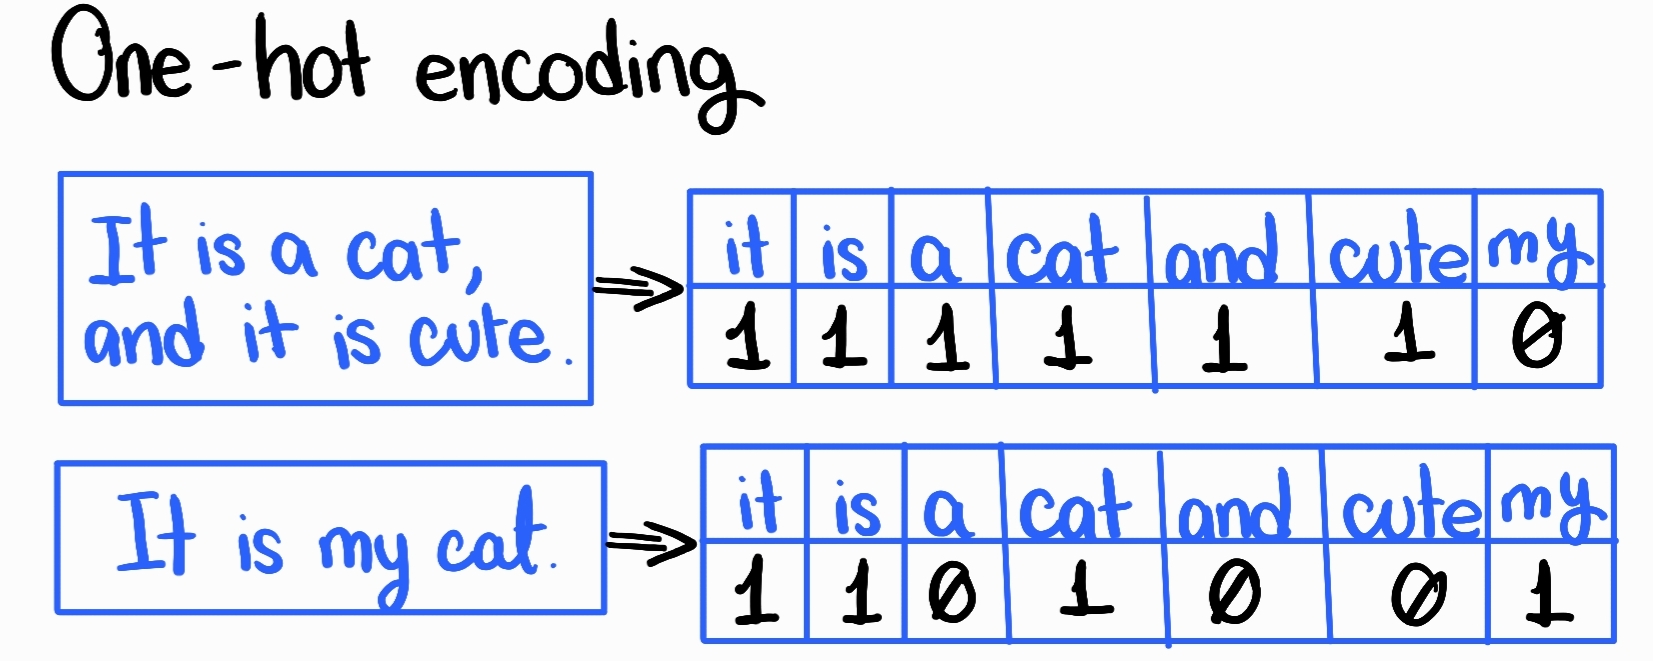 One-hot encoding
It is a cat,
and it is cute.
it is a cat and cute my
1 1 1 1 1 1 0
It is my cat.
it is a cat and cute my
1 1 0 1 0 0 1